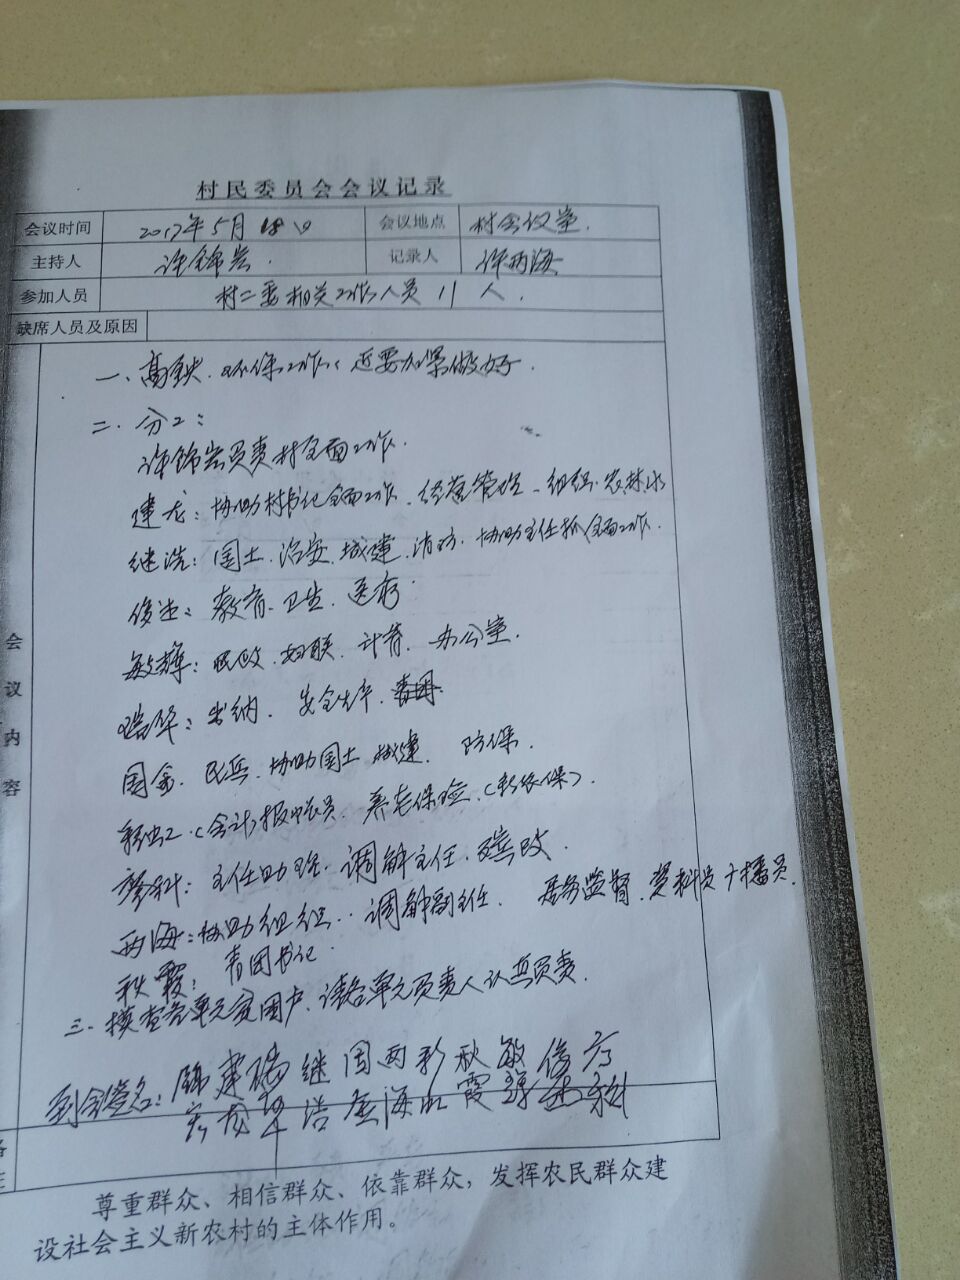 村民委员会会议记录
会议时间 2017年5月18日 会议地点 村会议室.
主持人 许锦宏. 记录人 许两海
参加人员 村二委相关工作人员11人.
缺席人员及原因
会议内容
一、高铁.环保工作.近要加紧做好.
二.分工:
许锦宏负责村全面工作.
建龙:协助村书记全面工作、经营管理、组织.农林水
继浩:国土.治安.城建.消防.协助主任抓全面工作.
俊杰:教育、卫生、医疗
敏 :民政.妇联.计育.办公室.
瑞华:出纳.安全生产.
国金.民兵.协助国土城建.防保.
彩虹.(会计)报账员.养老保险.(新农保).
 科:主任助理.调解主任.
两海:协助组织..调解副主任. 监督.资料员广播员.
秋霞:青团书记
三.核查各单元贫困户.请各单元负责人认真负责.
到会签名: 锦建瑞继国两彩秋敏俊
宏龙华浩金海虹霞 杰科
尊重群众、相信群众、依靠群众，发挥农民群众建
设社会主义新农村的主体作用。